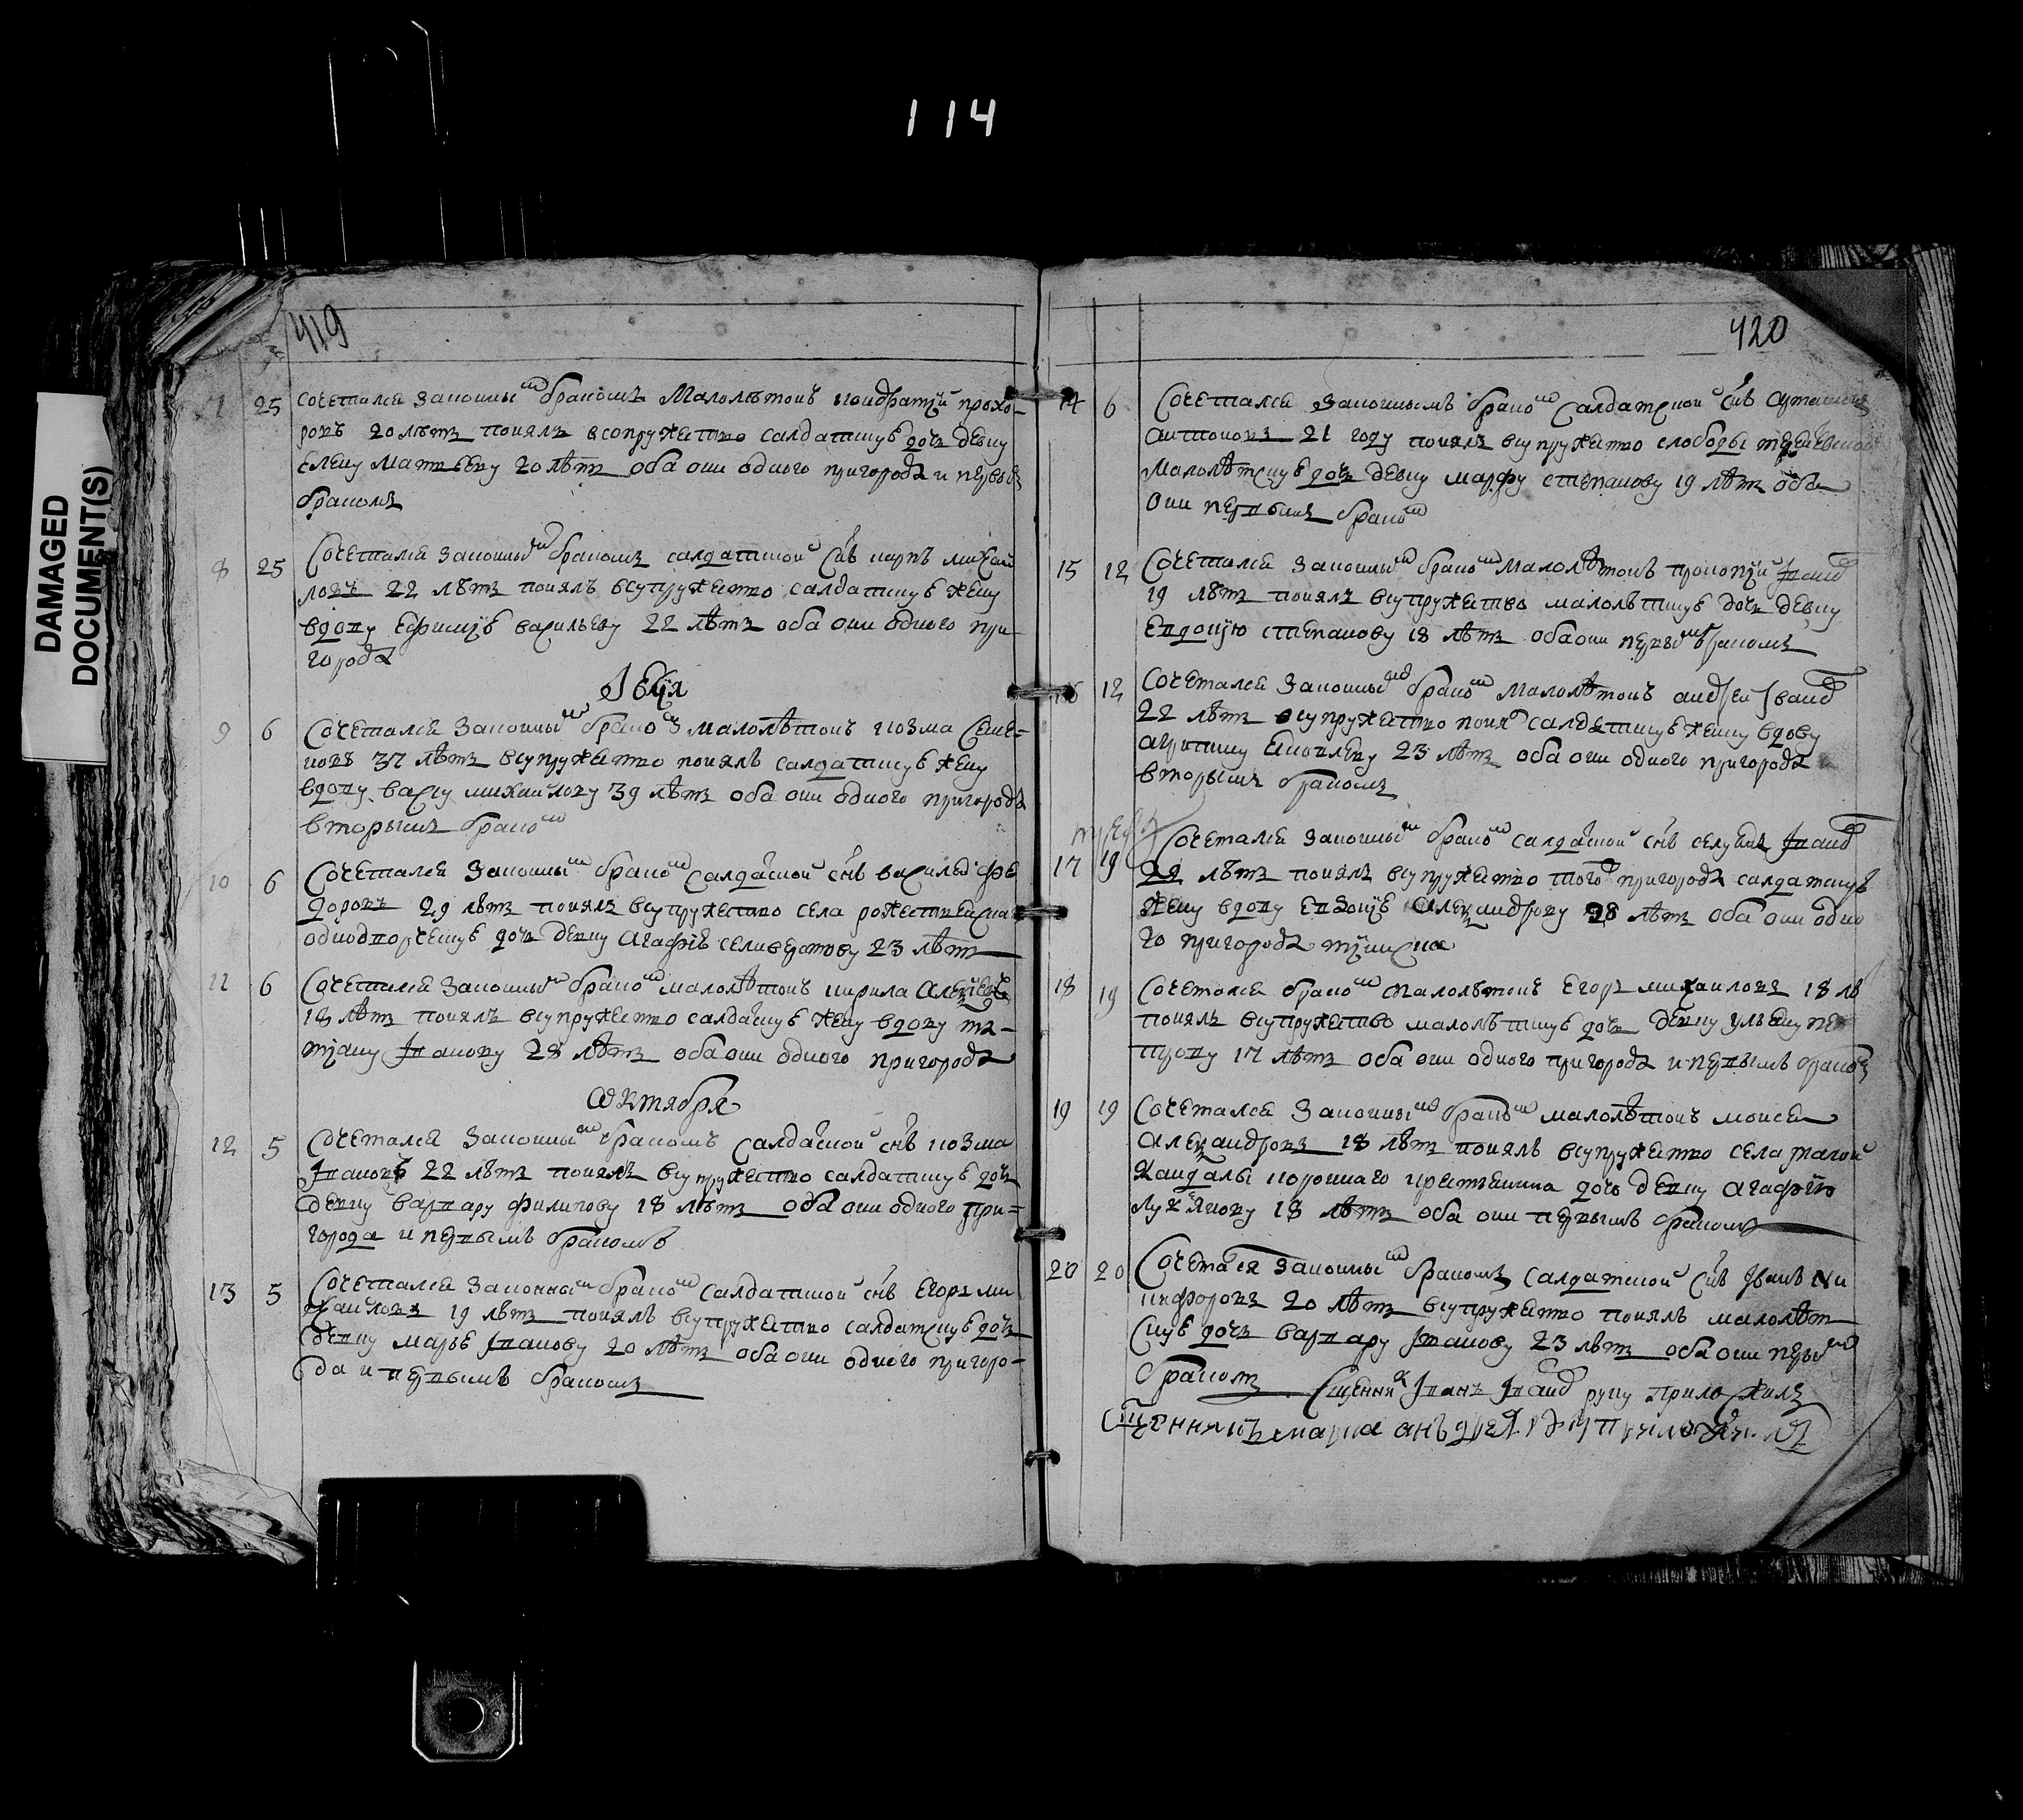 114
DAMAGED
DOCUMENT(S)
419
25 сочетался законны^м бракомъ Малолѣтокъ кондратiй прохо-
ровъ 20 лѣтъ понялъ в сопружество салдатскую дочь девку
елену матвееву 20 лѣтъ оба они одного пригорода и первымъ
бракомъ
8 25 Сочетался законны^м бракомъ салдатской снъ карпъ михаи
ловъ 22 лѣтъ понялъ всупружество салдатскую жену
вдову Ефимiю васильеву 22 лѣтъ оба они одного при-
города
Iюля
9 6 Сочетался законны^м брако^м малолѣтокъ козма Семе-
новъ 37 лѣтъ всупружество понялъ салдатскую жену
вдову васу михаилову 39 лѣтъ оба они одного пригорода
вторымъ брако^м
10 6 Сочетался законны^м брако^м салдацкой снъ василей фе
доровъ 29 лѣтъ понялъ всупружество села рожественска
однодворческую дочь девку Агафiю селивестову 23 лѣтъ
11 6 Сочетался законны^м брако^м малолѣтокъ кирила Алексѣевъ
18 лѣтъ понялъ всупружество салдацкую жену вдову та-
тiану Iванову 28 лѣтъ оба они одного пригорода
Октября
12 5 Сочетался законны^м бракомъ салдацкой снъ козма
Iвановъ 22 лѣтъ понялъ всупружество салдатскую дочь
девку варвару филипову 18 лѣтъ оба они одного при-
города и первымъ бракомъ
13 5 Сочетался законны^м брако^м салдатской снъ Егоръ ми
хаиловъ 19 лѣтъ понялъ всупружество салдатскую дочь
девку марью Iванову 20 лѣтъ оба они одного пригоро-
да и первымъ бракомъ
420
14 6 Сочетался законнымъ брако^м салдатской снъ
антоновъ 21 году понялъ всупружество слободы
Малолѣтскую дочь девку марфу степанову 19 лѣтъ оба
они первымъ брако^м
15 12 Сочетался законны^м брако^м малолѣтокъ прокопiй Iвано^в
19 лѣтъ понялъ всупружество малолѣтскую дочь девку
Евдокiю степанову 18 лѣтъ оба они первы^м бракомъ
16 12 Сочетался законны^м брако^м малолѣтокъ андрей Iвано^в
22 лѣтъ всупружество поня^л салдатскую жену вдову
23 лѣтъ оба они одного пригорода
вторымъ бракомъ
17 19 Сочетался законны^м брако^м салдацкой снъ Iвано^в
лѣтъ понялъ всупружество того^ж пригорода салдатскую
жену вдову Александрову 28 лѣтъ оба они одно
го пригорода тiинска
18 19 Сочетался брако^м малолѣтокъ Егоръ михаиловъ 18 лѣ
понялъ всупружество малолѣтскую дочь девку ульяну пе
трову 17 лѣтъ оба они одного пригорода и первымъ бракомъ
19 19 Сочетался законны^м брако^м малолѣтокъ моисей
Александровъ 18 лѣтъ понялъ всупружество села
Кандалы дочь девку Агафью
Лукьянову 18 лѣтъ оба они первымъ бракомъ
20 20 Сочетался законны^м бракомъ салдатской снъ Iванъ Ни
кифоровъ 20 лѣтъ всупружество понялъ малолѣт
скую дочь варвару Iванову 23 лѣтъ оба они первы^м
бракомъ Сщенни^к Iванъ Iвано^в руку приложилъ
Сщенникъ марка анъдреевъ руку приложилъ